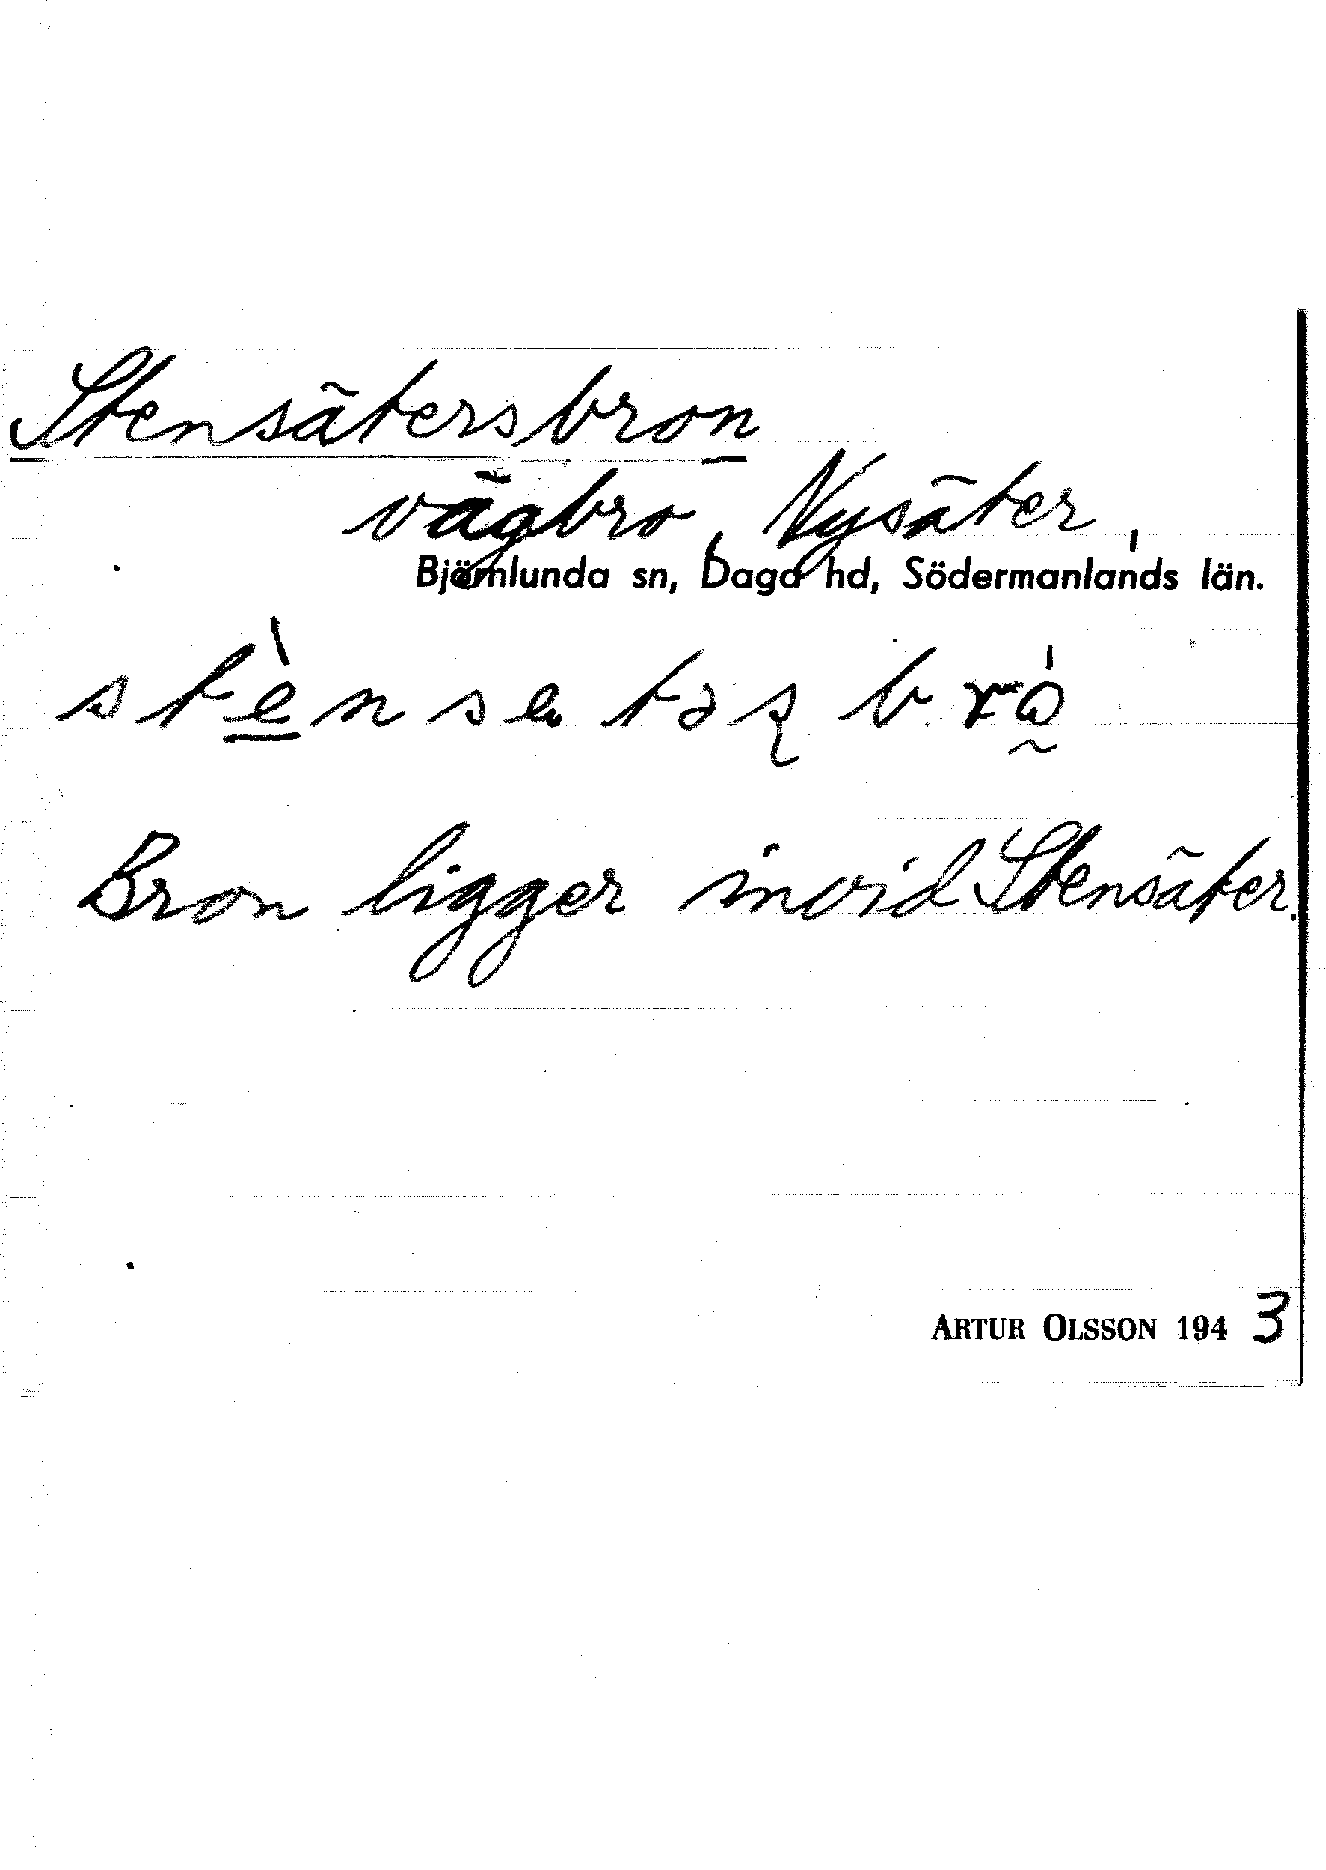 Stensätersbron
vägbro, Nysäter,
Björnlunda sn, Daga hd, Södermanlands län.
stènsetaʂbró
Bron ligger invid Stensäter.
ARTUR OLSSON 1943